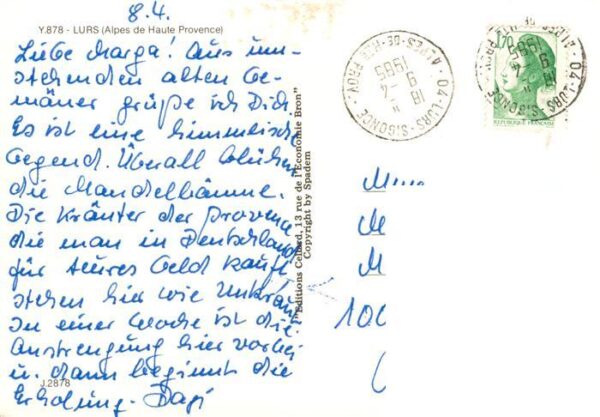 8.4.
Y.878 - LURS (Alpes de Haute Provence)
Liebe Marga! Aus um-
stehenden alten Ge-
mäuer grüße ich Dich.
Es ist eine himmlische
Gegend. Überall blühen
die Mandelbäume.
Die Kräuter der Provence,
die man in Deutschland
für teures Geld kauft
stehen hier wie Unkraut
In einer Woche ist die
Anstrengung hier vorbei
u. dann beginnt die
Erholung. Dagi
J.2878
"Editions Cellard, 13 rue de l'Economie Bron"
Copyright by Spadem
04-LURS-SIGONCE ALPES-DE-HTE PROV.
18 H
9 - 4
1985
04-LURS-SIGONCE ALPES-DE-HTE PROV.
18 H
9 - 4
1985
1,70
REPUBLIQUE FRANÇAISE
M.....
M
M
100